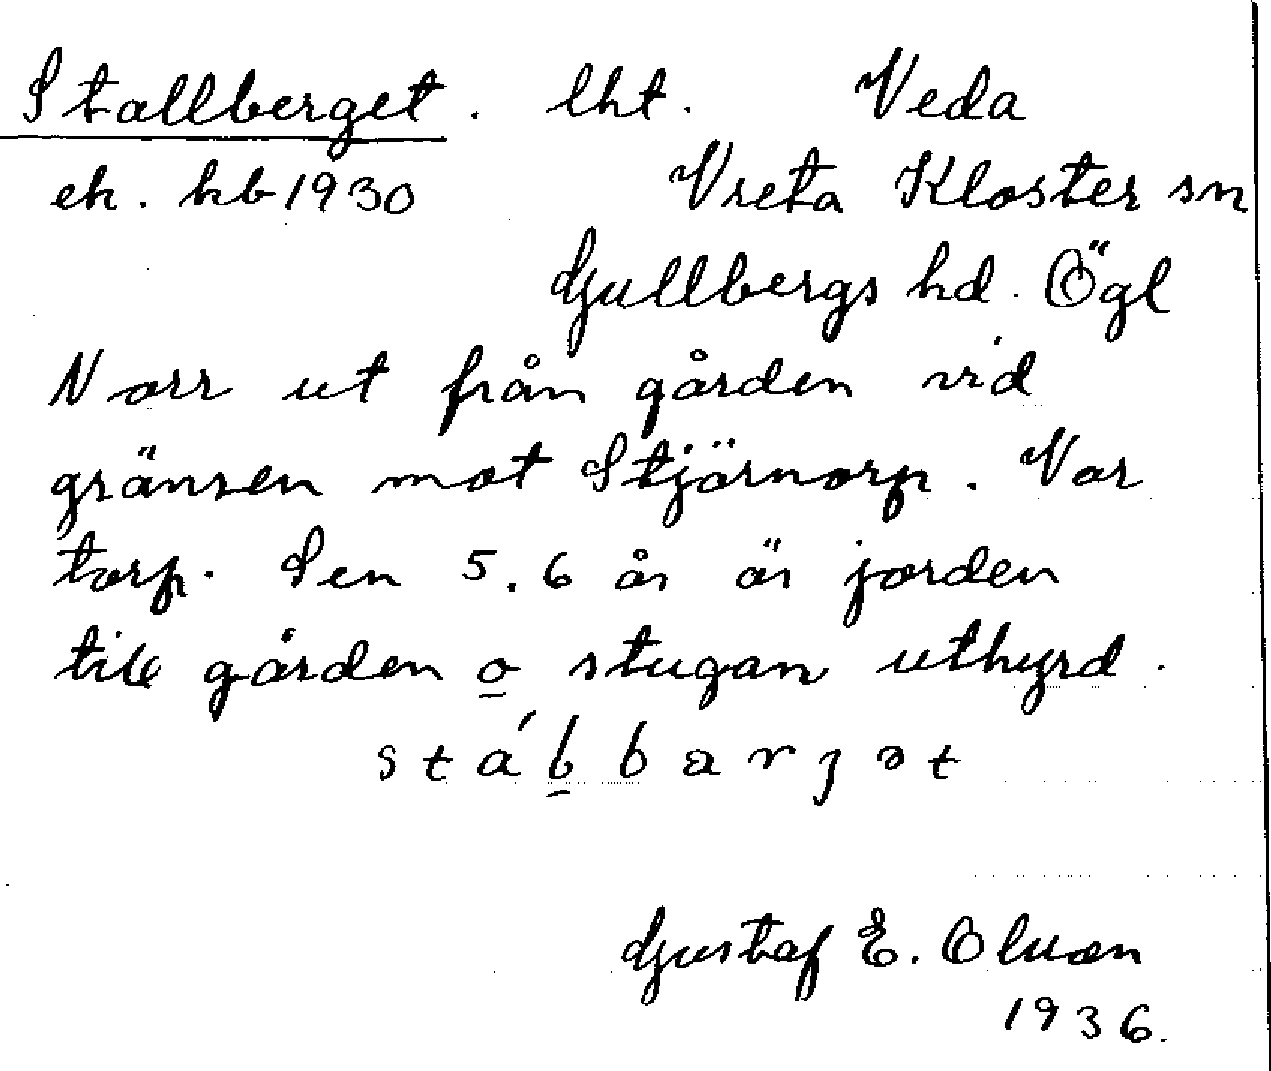 Stallberget. lht. Veda
ek. kb 1930 Vreta Kloster sn
Gullbergs hd. Ögl
Norr ut från gården vid
gränsen mot Stjärnorp. Var
torp. Sen 5.6 år är jorden
till gården o stugan uthyrd.
stábbarjət
Gustaf E. Olsson
1936.